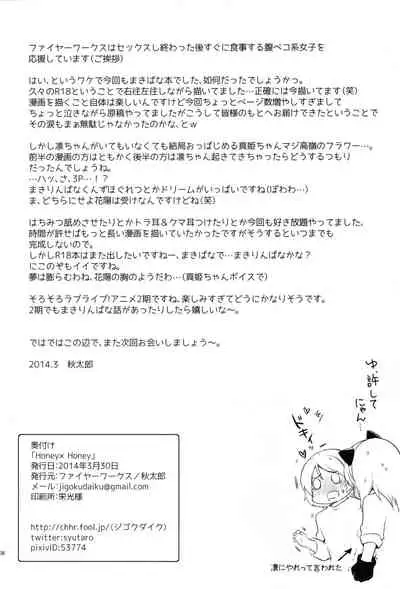 ファイヤーワークスはセックスし終わった後すぐに食事する腹ペコ系女子を
応援しています(ご挨拶)
はい、というワケで今回もまきぱな本でした、如何だったでしょうか。
久々のR18ということで右往左往しながら描いてました…正確には今描いてます(笑)
漫画を描くこと自体は楽しいんですけど今回ちょっとページ数増やしすぎまして
ちょっと泣きながら原稿やってましたがこうして皆様のもとへお届けできたということで
その涙もまぁ無駄じゃなかったのかな、とw
しかし凛ちゃんがいてもいなくても結局おっぱじめる真姫ちゃんマジ高嶺のフラワー…。
前半の漫画の方はともかく後半の方は凛ちゃん起きてきちゃったらどうするつもり
だったんでしょうね。
…ハッ、さ、3P…!?
まきりんぱなくんずほぐれつとかドリームがいっぱいですね(ぽわわ…)
ま、どちらにせよ花陽は受けなんですけどね!(笑)
はちみつ舐めさせたりとかトラ耳&クマ耳つけたりとか今回も好き放題やってました、
時間が許せばもっと長い漫画にしていきたかったですがそうするといつまでも
完成しないので。
しかしR18本はまた出したいですねー、まきぱなで…まきりんぱなかな?
にこのぞもイイですね。
夢は膨らむわね、花陽の胸のようだわ…(真姫ちゃんボイスで)
そろそろラブライブ!アニメ2期ですね、楽しみすぎてどうにかなりそうです。
2期でもまきりんぱな話があったりしたら嬉しいな~。
ではではこの辺で、また次回お会いしましょう~。
2014.3 秋太郎
奥付け
「Honey×Honey」
発行日:2014年3月30日
発行元:ファイヤーワークス/秋太郎
メール:jigokudaiku@gmail.com
印刷所:栄光様
http://chhr.fool.jp/(ジゴクダイク)
twitter:syutaro
pixivID:53774
ゆ、許して
にゃん…
ドキィ
凛にやれって言われた